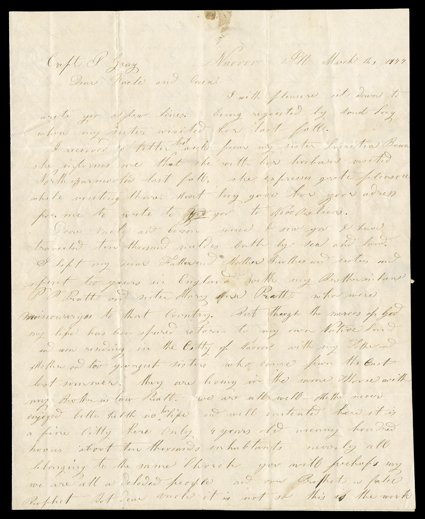 Capt P Gray Nauvoo Ills March 10, 1844
Dear Uncle and Aunt
I with pleasure sit down to
write you a few lines being requested by
when my sister visited her last fall.
I received a letter from my sister
she informes me that she with her husband visited
last fall. she express grate pleasure
while visiting there. gave her your adress
for me to write to you to
Dear uncle and since I see you I have
traveled ten thousand miles both by sea and land.
I left my dear Father and Mother brother and sisters and
spent two years in England with my Brother in law
P P Pratt and sister Mary Ann Pratt who were
missionarys to that Country. But through the mercies of God
my life has been spared return to my own Native land
and am residing in the City of Nauvoo with my
Mother and two youngest sisters who came from the East
last summer. they are living in the same House with
my Brother in law Pratt. we are all well Mother never
enjoyed better helth and well contented here it is
a fine Citty here only 4 years old menny hundred
houses about ten thousands inhabitants nearly all
belonging to the same Church you will perhaps say
we are all a deluded people and our Prophet a false
Prophet But dear Uncle it is not so this is the work